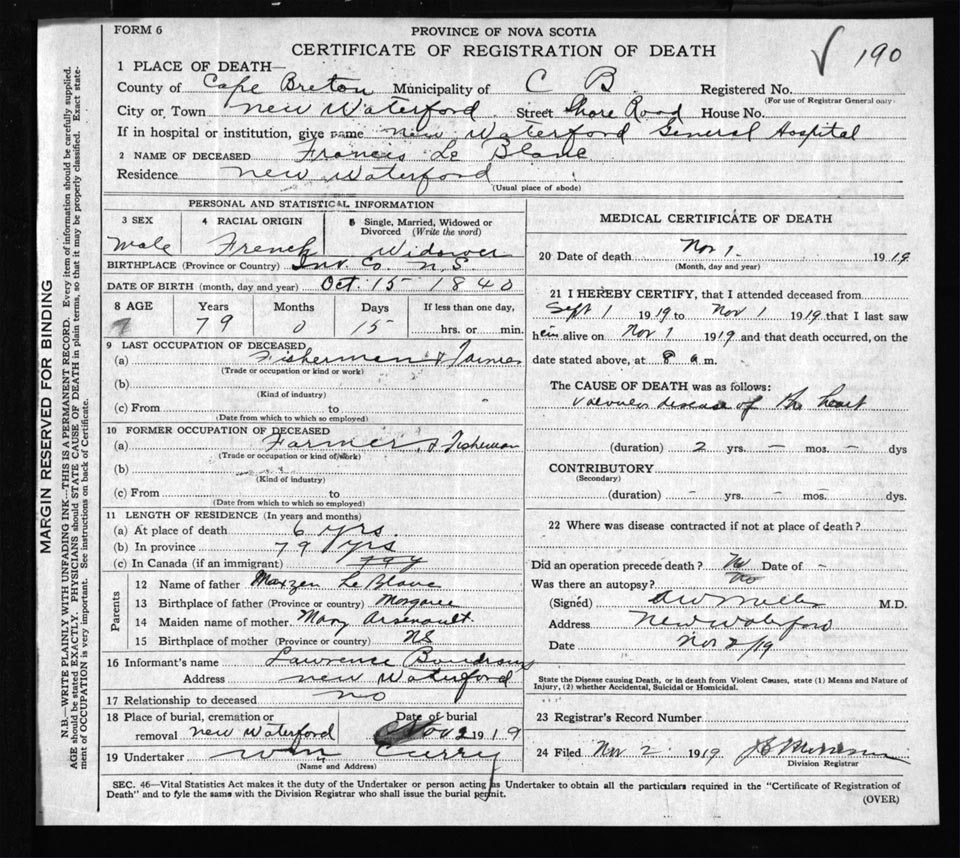 FORM 6
PROVINCE OF NOVA SCOTIA
CERTIFICATE OF REGISTRATION OF DEATH
√ 190
1 PLACE OF DEATH—
County of Cape Breton Municipality of C B Registered No.
(For use of Registrar General only)
City or Town New Waterford Street Shore Road House No.
If in hospital or institution, give name New Waterford General Hospital
2 NAME OF DECEASED Francis Le Blanc
Residence New Waterford
(Usual place of abode)
PERSONAL AND STATISTICAL INFORMATION
3 SEX 4 RACIAL ORIGIN 5 Single, Married, Widowed or Divorced (Write the word)
Male French Widower
BIRTHPLACE (Province or Country) Inv. Co. N.S.
DATE OF BIRTH (month, day and year) Oct. 15 1840
8 AGE Years Months Days If less than one day,
79 0 15 hrs. or min.
9 LAST OCCUPATION OF DECEASED
(a) Fisherman & Farmer
(Trade or occupation or kind or work)
(b)
(Kind of industry)
(c) From to
(Date from which to which so employed)
10 FORMER OCCUPATION OF DECEASED
(a) Farmer & Fisherman
(Trade or occupation or kind of work)
(b)
(Kind of industry)
(c) From to
(Date from which to which so employed)
11 LENGTH OF RESIDENCE (In years and months)
(a) At place of death 6 yrs.
(b) In province 79 yrs
(c) In Canada (if an immigrant)
Parents
12 Name of father Maxzen Le Blanc
13 Birthplace of father (Province or country) Margaree
14 Maiden name of mother Mary Arsenault
15 Birthplace of mother (Province or country) NS
16 Informant's name Lawrence Boudreau
Address New Waterford
17 Relationship to deceased no
18 Place of burial, cremation or removal New Waterford Date of burial Nov 2 1919
19 Undertaker Wm Curry
(Name and Address)
MEDICAL CERTIFICATE OF DEATH
20 Date of death Nov 1 1919
(Month, day and year)
21 I HEREBY CERTIFY, that I attended deceased from
Sept 1 1919 to Nov 1 1919 that I last saw
him alive on Nov 1 1919 and that death occurred, on the
date stated above, at 8 a.m.
The CAUSE OF DEATH was as follows:
Valvular disease of the heart
(duration) 2 yrs. – mos. – dys
CONTRIBUTORY
(Secondary)
(duration) – yrs. – mos. – dys.
22 Where was disease contracted if not at place of death?
Did an operation precede death? No Date of –
Was there an autopsy? No
(Signed) M.D.
Address New Waterford
Date Nov 2/19
State the Disease causing Death, or in death from Violent Causes, state (1) Means and Nature of
Injury, (2) whether Accidental, Suicidal or Homicidal.
23 Registrar's Record Number
24 Filed Nov. 2 1919
Division Registrar
SEC. 46—Vital Statistics Act makes it the duty of the Undertaker or person acting as Undertaker to obtain all the particulars required in the "Certificate of Registration of
Death" and to fyle the same with the Division Registrar who shall issue the burial permit.
(OVER)
MARGIN RESERVED FOR BINDING
N.B.—WRITE PLAINLY WITH UNFADING INK—THIS IS A PERMANENT RECORD. Every item of information should be carefully supplied.
AGE should be stated EXACTLY. PHYSICIANS should STATE CAUSE OF DEATH in plain terms, so that it may be properly classified. Exact state-
ment of OCCUPATION is very important. See instructions on back of Certificate.